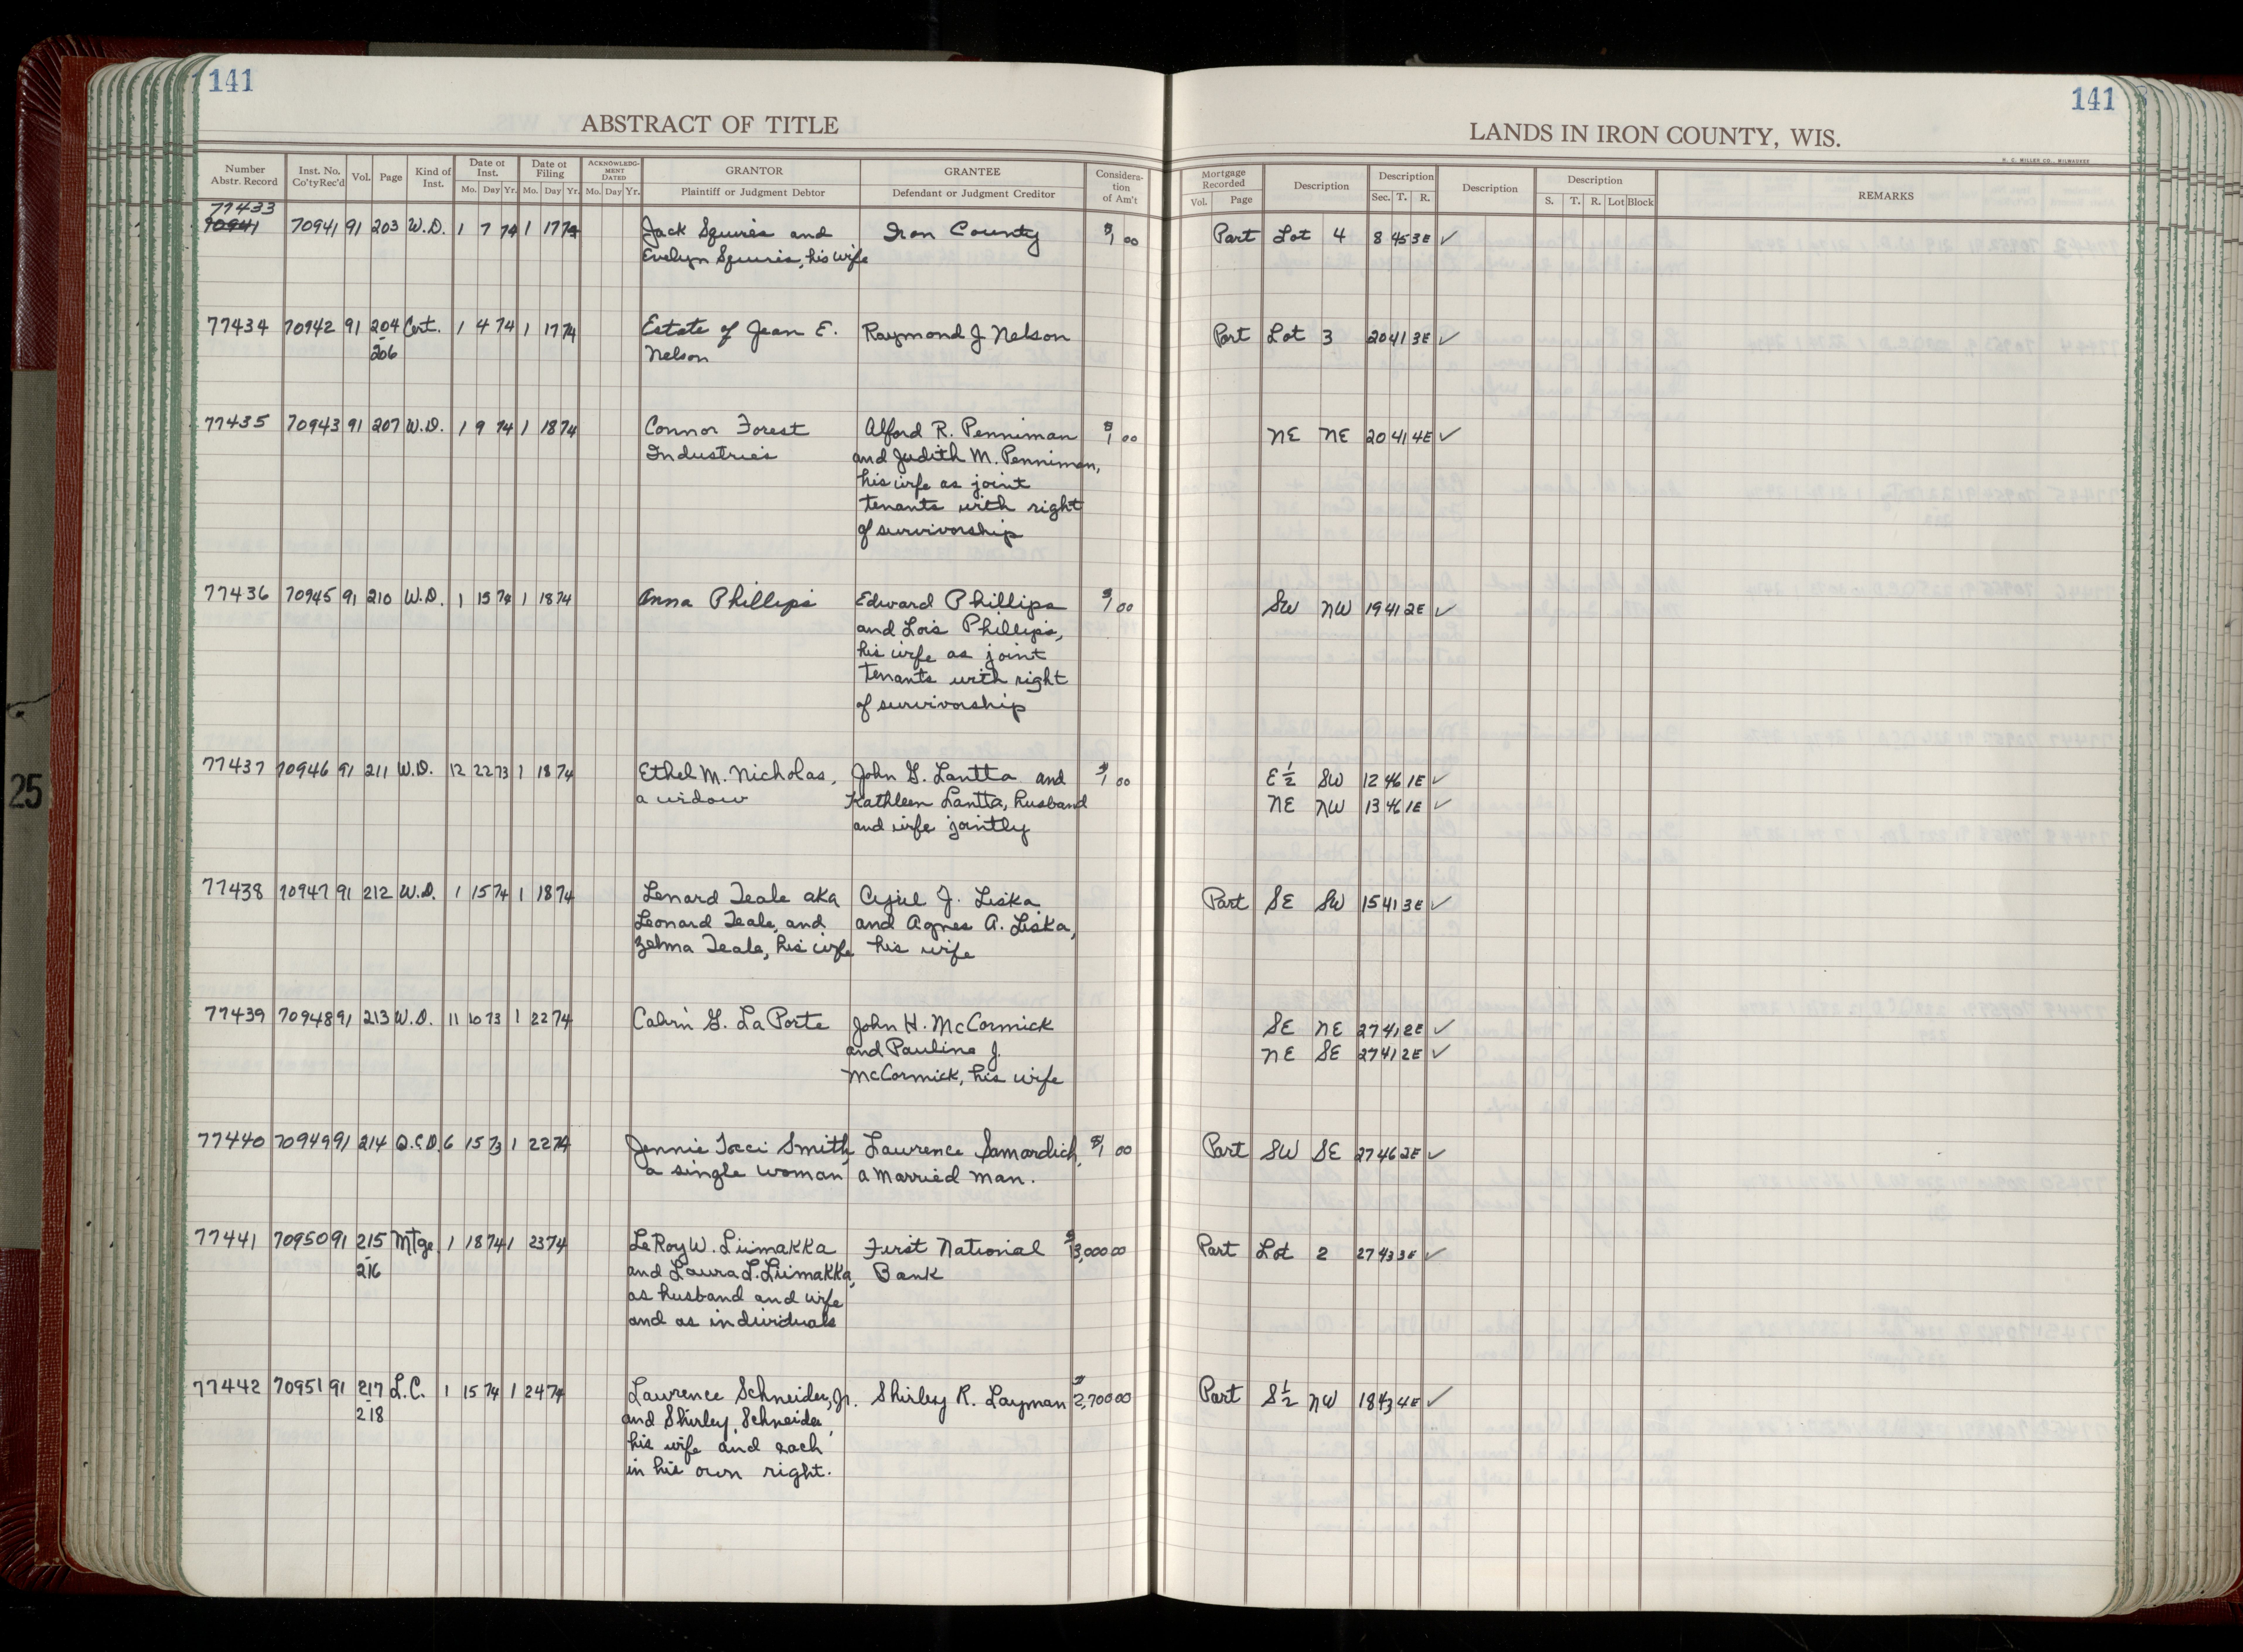 141
141
ABSTRACT OF TITLE
LANDS IN IRON COUNTY, WIS.
H. C. MILLER CO., MILWAUKEE
Number Abstr. Record | Inst. No. Co'ty Rec'd | Vol. | Page | Kind of Inst. | Date of Inst. Mo. Day Yr. | Date of Filing Mo. Day Yr. | ACKNOWLEDGMENT DATED Mo. Day Yr. | GRANTOR Plaintiff or Judgment Debtor | GRANTEE Defendant or Judgment Creditor | Consideration of Am't | Mortgage Recorded Vol. Page | Description | Description Sec. T. R. | Description | Description S. T. R. Lot Block | REMARKS
77433
70941 70941 91 203 W.D. 1 7 74 1 17 74 Jack Squires and Iron County $1 00 Part Lot 4 8 45 3E ✓
Evelyn Squires, his wife
77434 70942 91 204 Cert. 1 4 74 1 17 74 Estate of Jean E. Raymond J Nelson Part Lot 3 20 41 3E ✓
- 206 Nelson
77435 70943 91 207 W.D. 1 9 74 1 18 74 Connor Forest Alford R. Penniman $1 00 NE NE 20 41 4E ✓
Industries and Judith M. Penniman,
his wife as joint
tenants with right
of survivorship
77436 70945 91 210 W.D. 1 15 74 1 18 74 Anna Phillips Edward Phillips $1 00 SW NW 19 41 2E ✓
and Lois Phillips,
his wife as joint
tenants with right
of survivorship
77437 70946 91 211 W.D. 12 22 73 1 18 74 Ethel M. Nicholas, John G. Lantta and $1 00 E½ SW 12 46 1E ✓
a widow Kathleen Lantta, husband NE NW 13 46 1E ✓
and wife jointly
77438 70947 91 212 W.D. 1 15 74 1 18 74 Lenard Teale aka Cyril J. Liska Part SE SW 15 41 3E ✓
Leonard Teale, and and Agnes A. Liska,
Zelma Teale, his wife his wife
77439 70948 91 213 W.D. 11 10 73 1 22 74 Calvin G. LaPorte John H. McCormick SE NE 27 41 2E ✓
and Pauline J. NE SE 27 41 2E ✓
McCormick, his wife
77440 70949 91 214 Q.C.D. 6 15 73 1 22 74 Jennie Tocci Smith, Lawrence Samardich, $1 00 Part SW SE 27 46 2E ✓
a single woman a married man.
77441 70950 91 215 Mtge. 1 18 74 1 23 74 LeRoy W. Liimakka First National $3,000 00 Part Lot 2 27 43 3E ✓
- 216 and Laura L. Liimakka, Bank
as husband and wife
and as individuals
77442 70951 91 217 L.C. 1 15 74 1 24 74 Lawrence Schneider, Jr. Shirley R. Layman $2,700 00 Part S½ NW 18 43 4E ✓
- 218 and Shirley Schneider,
his wife and each
in his own right.
25